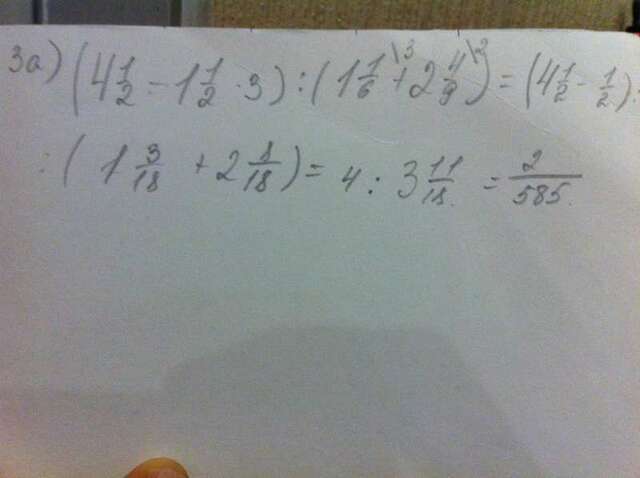 3а) (4 1/2 - 1 1/2 · 3) : (1 1/6 \3 + 2 4/9 \2) = (4 1/2 - 1/2) :
: (1 3/18 + 2 8/18) = 4 : 3 11/18 = 2/585